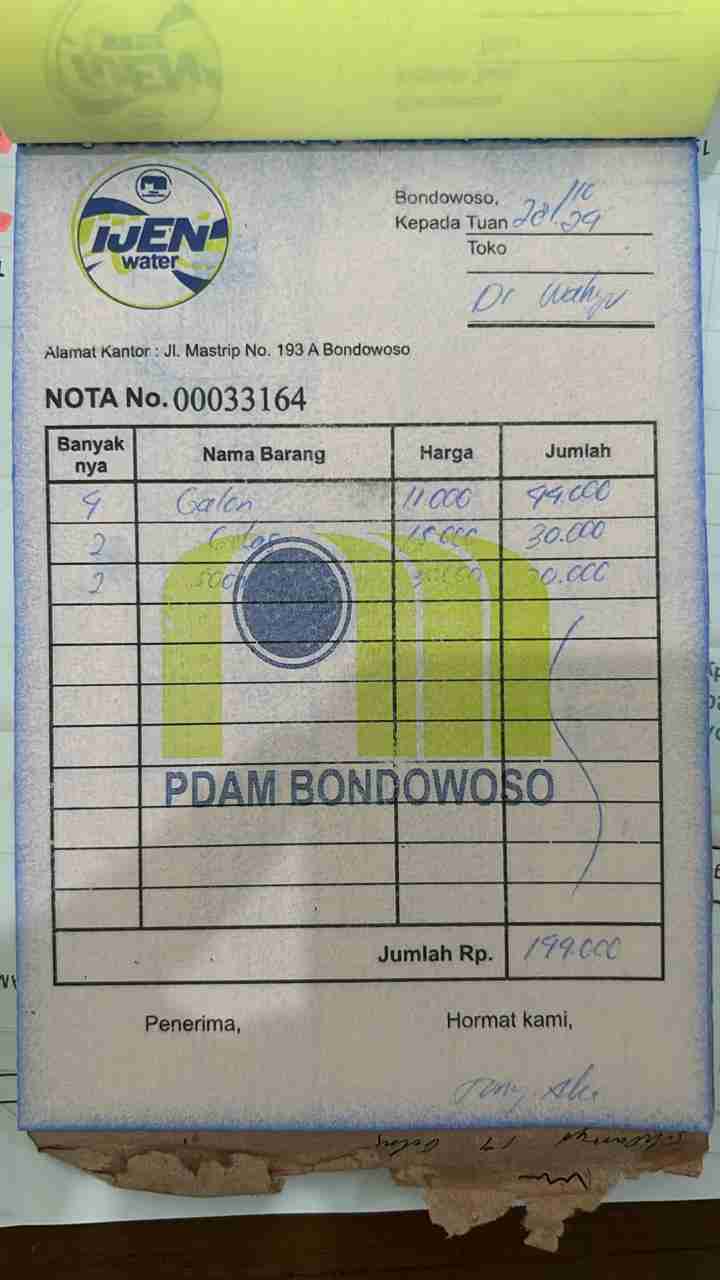 IJEN
water
Bondowoso, 28/10 24
Kepada Tuan
Toko
Dr Wahyu
Alamat Kantor : Jl. Mastrip No. 193 A Bondowoso
NOTA No. 00033164
Banyak nya Nama Barang Harga Jumlah
4 Galon 11.000 44.000
2 Gelas 15.000 30.000
2 30.000
PDAM BONDOWOSO
Jumlah Rp.
Penerima, Hormat kami,